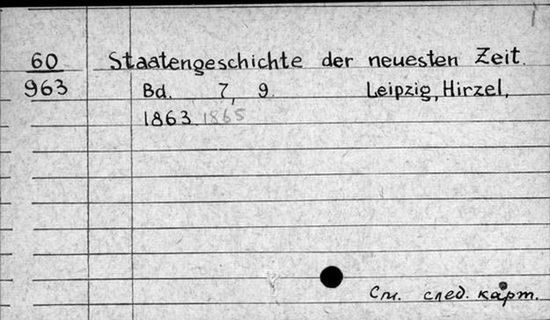 60 Staatengeschichte der neuesten Zeit.
963 Bd. 7, 9. Leipzig, Hirzel,
1863. 1865
См. след. карт.